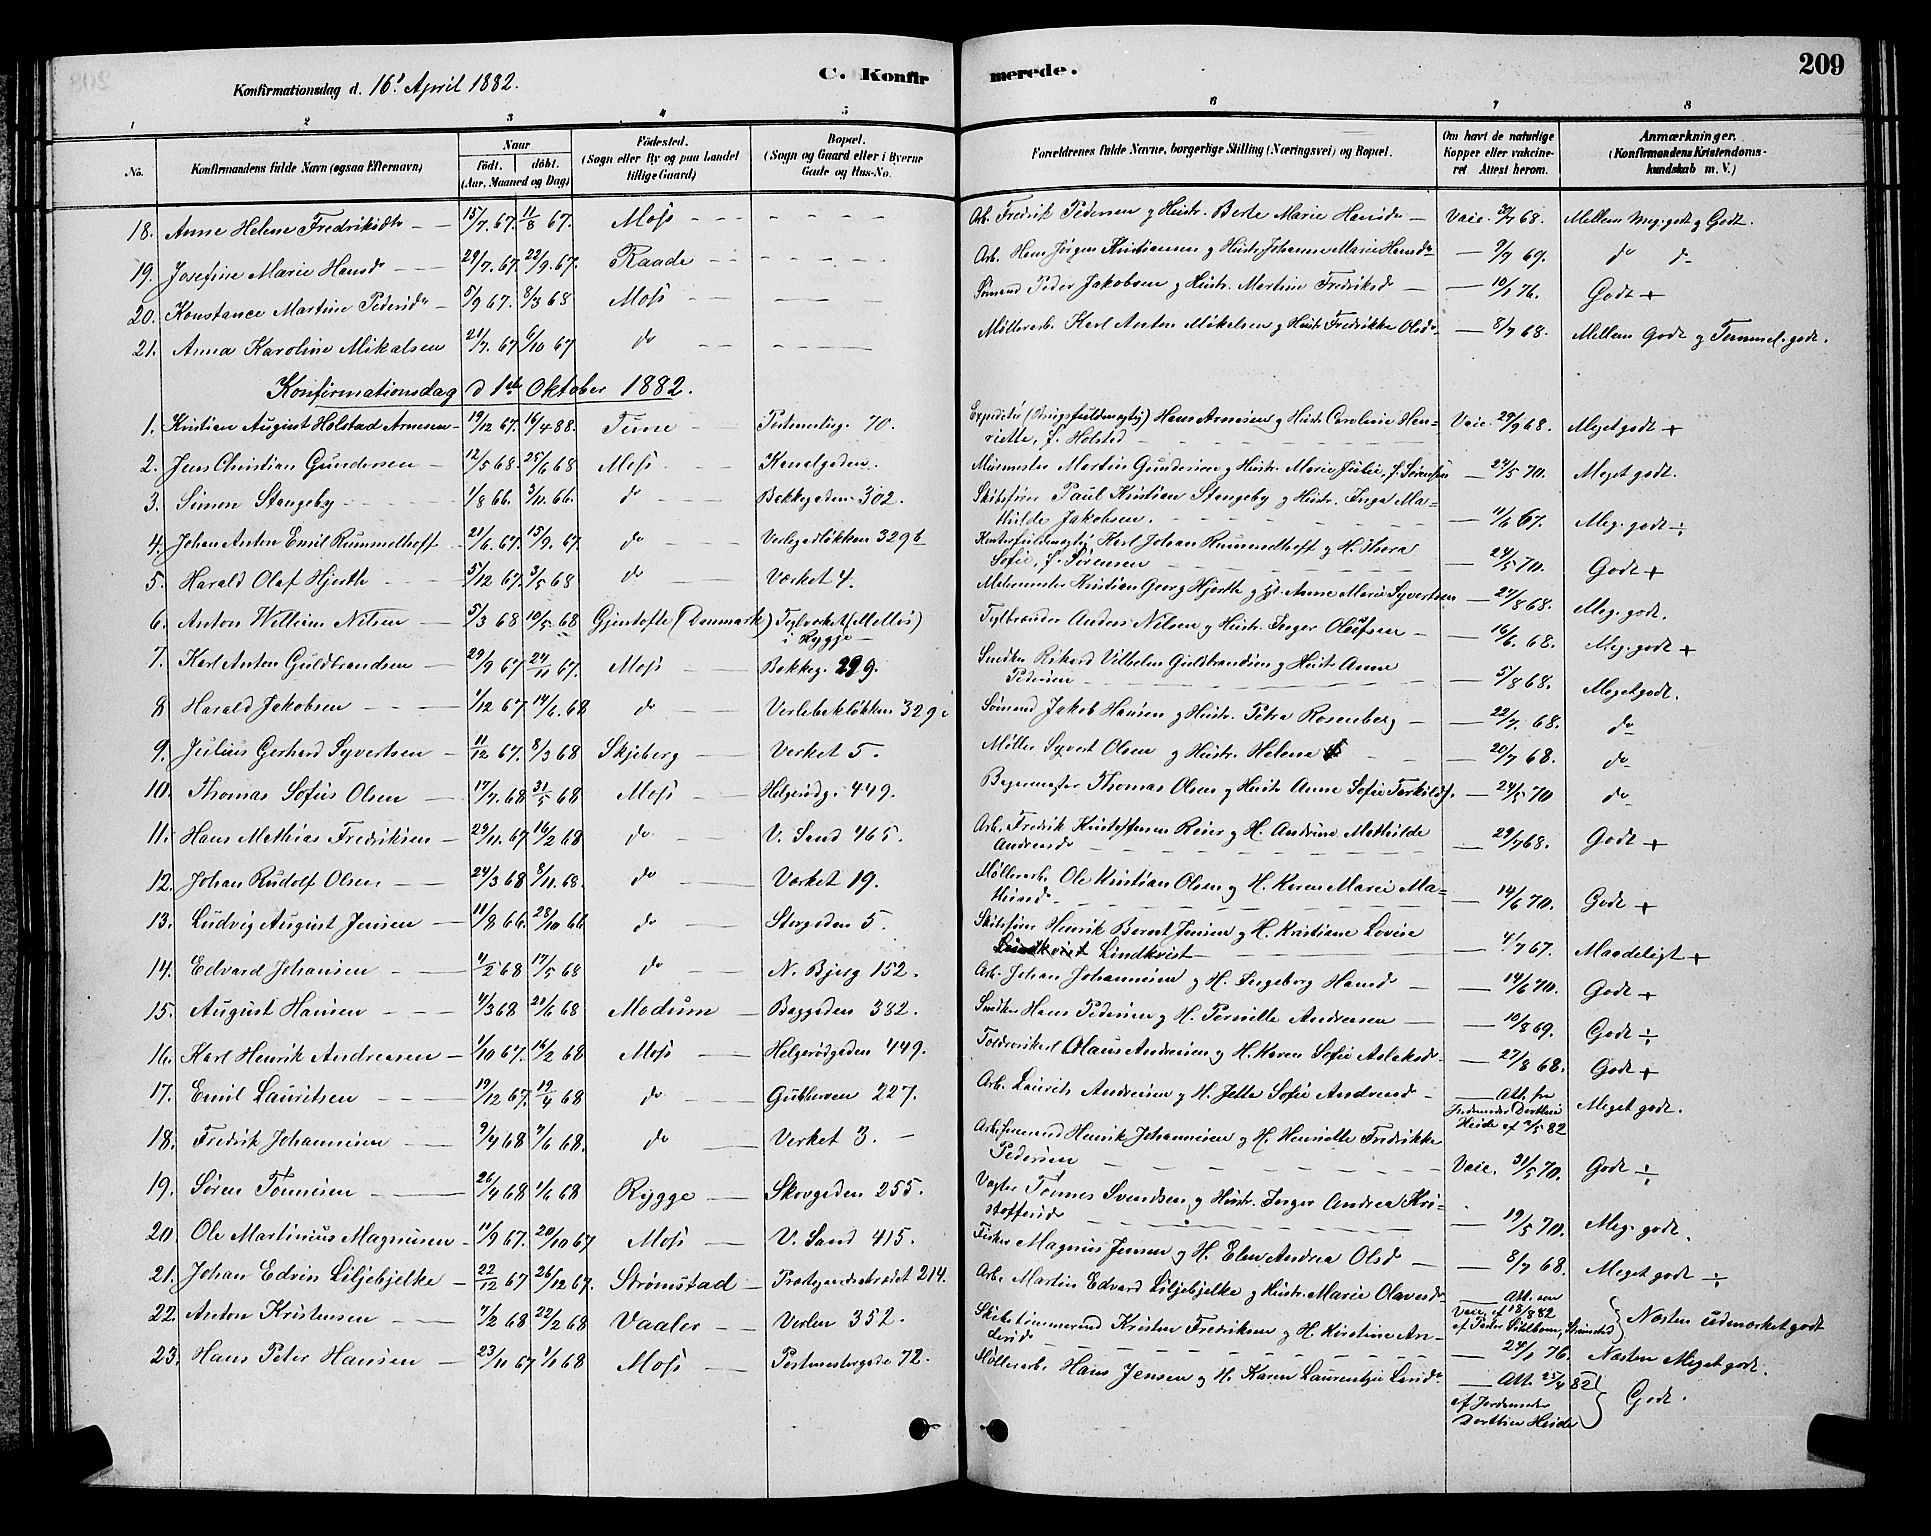 C. Konfirmerede.
209
Konfirmationsdag d. 16' April 1882.
1 2 3 4 5 6 7 8
No.
Konfirmandens fulde Navn (ogsaa Efternavn)
Naar
født. døbt.
(Aar, Maaned og Dag)
Fødested.
(Sogn eller By og paa Landet
tillige Gaard)
Bopæl.
(Sogn og Gaard eller i Byerne
Gade og Hus-No.
Forældrenes fulde Navne, borgerlige Stilling (Næringsvei) og Bopæl.
Om havt de naturlige
Kopper eller vakcine-
ret Attest herom.
Anmærkninger.
(Konfirmandens Kristendoms-
kundskab m. V.)
18. Anne Helene Fredriksdtr 15/7 67. 11/8 67. Moss Arb. Fredrik Pedersen og Hustr. Berte Marie Hansd. Vaic. 30/7 68. Mellem Meg. godt og Godt.
19. Josefine Marie Hansd. 29/7 67. 22/9 67. Raade Arb. Hans Jørgen Kristiansen og Hustr. Johanne Marie Hansd. 9/7 69. do do
20. Konstance Martine Pedersdr 5/9 67. 8/3 68 Moss Sømand Peder Jakobsen og Hustr. Martine Fredriksd. 10/1 76. Godt +
21. Anna Karoline Mikalsen 21/7 67 6/10 67 do Møllerarb. Karl Anton Mikelsen og Hustr. Fredrikke Olsd. 8/7 68. Mellem Godt og Temmel. godt.
Konfirmationsdag d 1ste Oktober 1882.
1. Kristian August Holstad Arnesen 19/12 67. 16/4 88. Tune Postmesterg. 70. Expeditør (Brugsfuldmægtig) Hans Arnesen og Hustr. Caroline Hen-
riette, f. Holsted Vaic. 29/9 68. Meget godt +
2. Jens Christian Gundersen 12/5 68. 25/6 68 Moss Kanalgaden. Murmester Martin Gundersen og Hustr. Marie Julie, f. Sørensen 24/5 70. Meget godt.
3. Simon Stangeby 1/8 66. 3/11 66. do Bakkegaden 302. Skibsfører Paul Kristian Stangeby og Hustr. Inga Ma-
thilde Jakobsen. 11/6 67. Meg. godt ÷
4. Johan Anton Emil Rummelhoff 21/6 67. 15/9 67. do Verlegadløkken 329 b Kontorfuldmægtig Karl Johan Rummelhoff og H. Thora
Sofie, f. Sørensen 24/5 70. Godt +
5. Harald Olaf Hjorth 5/12 67. 3/5 68 do Værket 4. Malermester Kristian Georg Hjorth og H. Anne Marie Syvertsen 27/8 68. Meg. godt.
6. Anton Wilhelm Nilsen 5/3 68 10/5 68 Gjentofte (Denmark) Teglverket (Melløs)
i Rygge Teglbrænder Anders Nilsen og Hustr. Inger Olufsen 16/6 68. Meg. godt +
7. Karl Anton Guldbrandsen 29/9 67 24/11 67. Moss Bakkeg. 299. Snedker Rikard Vilhelm Guldbrandsen og Hustr. Anne
Pedersen 5/8 68. Meget godt.
8 Harald Jakobsen 1/12 67. 14/6 68 do Verlebekløkken 329 Sømand Jakob Hansen og Hustr. Petra Rosenberg 22/7 68. do
9. Julius Gerhard Syvertsen 11/12 67. 8/3 68 Skjeberg Verket 5. Møller Syvert Olsen og Hustr. Helene 20/7 68. do
10. Thomas Sofus Olsen 17/7 68 31/5 68 Moss Helgerødg. 449. Bagermester Thomas Olsen og Hustr. Anne Sofie Torkilds. 24/5 70 do
11. Hans Mathias Fredriksen 29/11 67 16/2 68 do V. Sand 465. Arb. Fredrik Kristoffersen Reier og H. Andrine Mathilde
Andreasd. 29/7 68. Godt +
12. Johan Rudolf Olsen 24/3 68 8/11 68. do Værket 19. Møllerarb. Ole Kristian Olsen og H. Karen Marie Ma-
thiasd. 14/6 70. Godt +
13. Ludvig August Jensen 11/8 66. 28/10 66 do Storgaden 5. Skibsfører Henrik Bernt Jensen og H. Kristiane Lovise
Lindkvist 4/7 67. Maadeligt +
14. Edvard Johansen 4/2 68 17/5 68 do N. Bjerg 152. Arb. Johan Johannesen og H. Ingeborg Hansd. 14/6 70. Godt +
15. August Hansen 4/3 68 21/6 68 Modum Baggaden 382. Snedker Hans Pedersen og H. Pernille Andreasen 10/8 69. Godt ÷
16. Karl Henrik Andreasen 1/10 67. 16/2 68 Moss Helgerødgaden 449. Toldroerkarl Olaus Andersen og H. Karen Sofie Aslaksd. 27/8 68. Godt +
17. Emil Lauritsen 19/12 67. 19/4 68 do Gubberen 227. Arb. Laurits Andersen og H. Jette Sofie Andersd. Att. fra
Jordemoder Dorthea
Heide af 2/5 82 Meget godt.
18. Fredrik Johannesen 9/4 68 7/6 68. do Verket 3. Arbeidsmand Henrik Johannesen og H. Henriette Fredrikke
Pedersen Vaic. 31/5 70. Godt ÷
19. Søren Tønnesen 26/4 68 1/6 68 Rygge Skovgaden 255. Vagter Tønnes Svendsen og Hustr. Inger Andrea Kri-
stoffersd. 19/5 70. Meg. godt.
20. Ole Martinius Magnusen 11/9 67. 20/10 67 Moss V. Sand 415. Fisker Magnus Jensen og H. Elen Andrea Olsd 8/7 68. Meget godt ÷
21. Johan Edvin Liljebjelke 22/12 67 26/12 67. Strømstad Prestegaardsstrædet 214. Arb. Martin Edvard Liljebjelke og Hustr. Marie Olavesd. Att. om
Vaic. af 18/8 82
af Pastor Sihlbom, Strømstad Næsten udmærket godt
22. Anton Kristensen 7/2 68 22/2 68 Vaaler Verlen 352. Skibstømmermand Kristen Fredriksen og H. Kirstine An-
dersd 24/1 76. Næsten Meget godt.
23. Hans Peter Hansen 23/11 67 1/1 68 Moss Postmestergade 72. Møllerarb. Hans Jensen og H. Karen Laurentze Larsd. Att. 25/4 82
af Jordemoder
Dorthea Heide Godt.